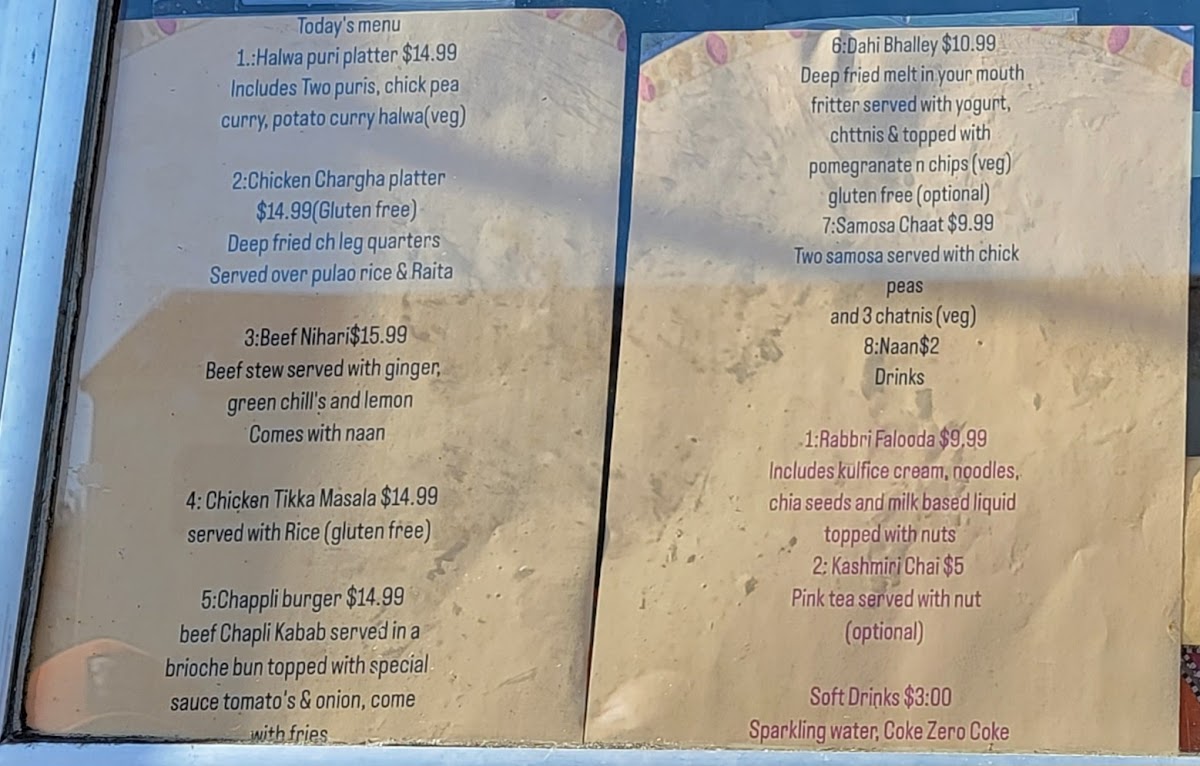 Today's menu
1.:Halwa puri platter $14.99
Includes Two puris, chick pea
curry, potato curry halwa(veg)
2:Chicken Chargha platter
$14.99(Gluten free)
Deep fried ch leg quarters
Served over pulao rice & Raita
3:Beef Nihari$15.99
Beef stew served with ginger,
green chill's and lemon
Comes with naan
4: Chicken Tikka Masala $14.99
served with Rice (gluten free)
5:Chappli burger $14.99
beef Chapli Kabab served in a
brioche bun topped with special
sauce tomato's & onion, come
with fries
6:Dahi Bhalley $10.99
Deep fried melt in your mouth
fritter served with yogurt,
chttnis & topped with
pomegranate n chips (veg)
gluten free (optional)
7:Samosa Chaat $9.99
Two samosa served with chick
peas
and 3 chatnis (veg)
8:Naan$2
Drinks
1:Rabbri Falooda $9.99
Includes kulfice cream, noodles,
chia seeds and milk based liquid
topped with nuts
2: Kashmiri Chai $5
Pink tea served with nut
(optional)
Soft Drinks $3:00
Sparkling water, Coke Zero Coke